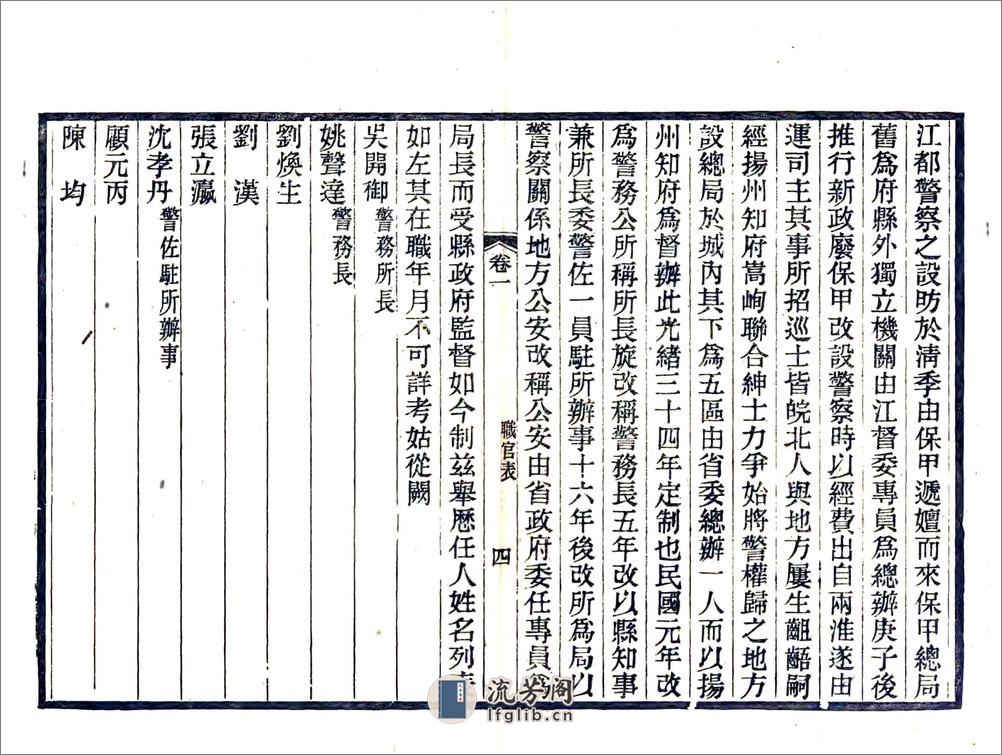 江都警察之設昉於淸季由保甲遞嬗而來保甲總局
舊爲府縣外獨立機關由江督委專員爲總辦庚子後
推行新政廢保甲改設警察時以經費出自兩淮遂由
運司主其事所招巡士皆皖北人與地方屢生齟齬嗣
經揚州知府嵩峋聯合紳士力爭始將警權歸之地方
設總局於城內其下爲五區由省委總辦一人而以揚
州知府爲督辦此光緒三十四年定制也民國元年改
爲警務公所稱所長旋改稱警務長五年改以縣知事
兼所長委警佐一員駐所辦事十六年後改所爲局以
警察關係地方公安改稱公安由省政府委任專員爲
卷一
職官表
四
局長而受縣政府監督如今制茲舉歷任人姓名列表
如左其在職年月不可詳考姑從闕
吳開御 警務所長
姚聲達 警務長
劉煥生
劉 漢
張立瀛
沈孝丹 警佐駐所辦事
顧元丙
陳 均
流芳閣
lfglib.cn